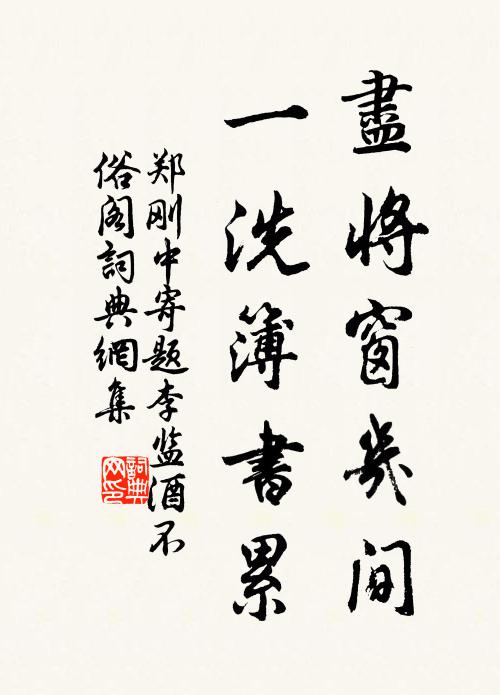 盡將窗幾間
一洗簿書累
郑刚中寄题李监酒不
俗阁詞典網集
詞典
网印